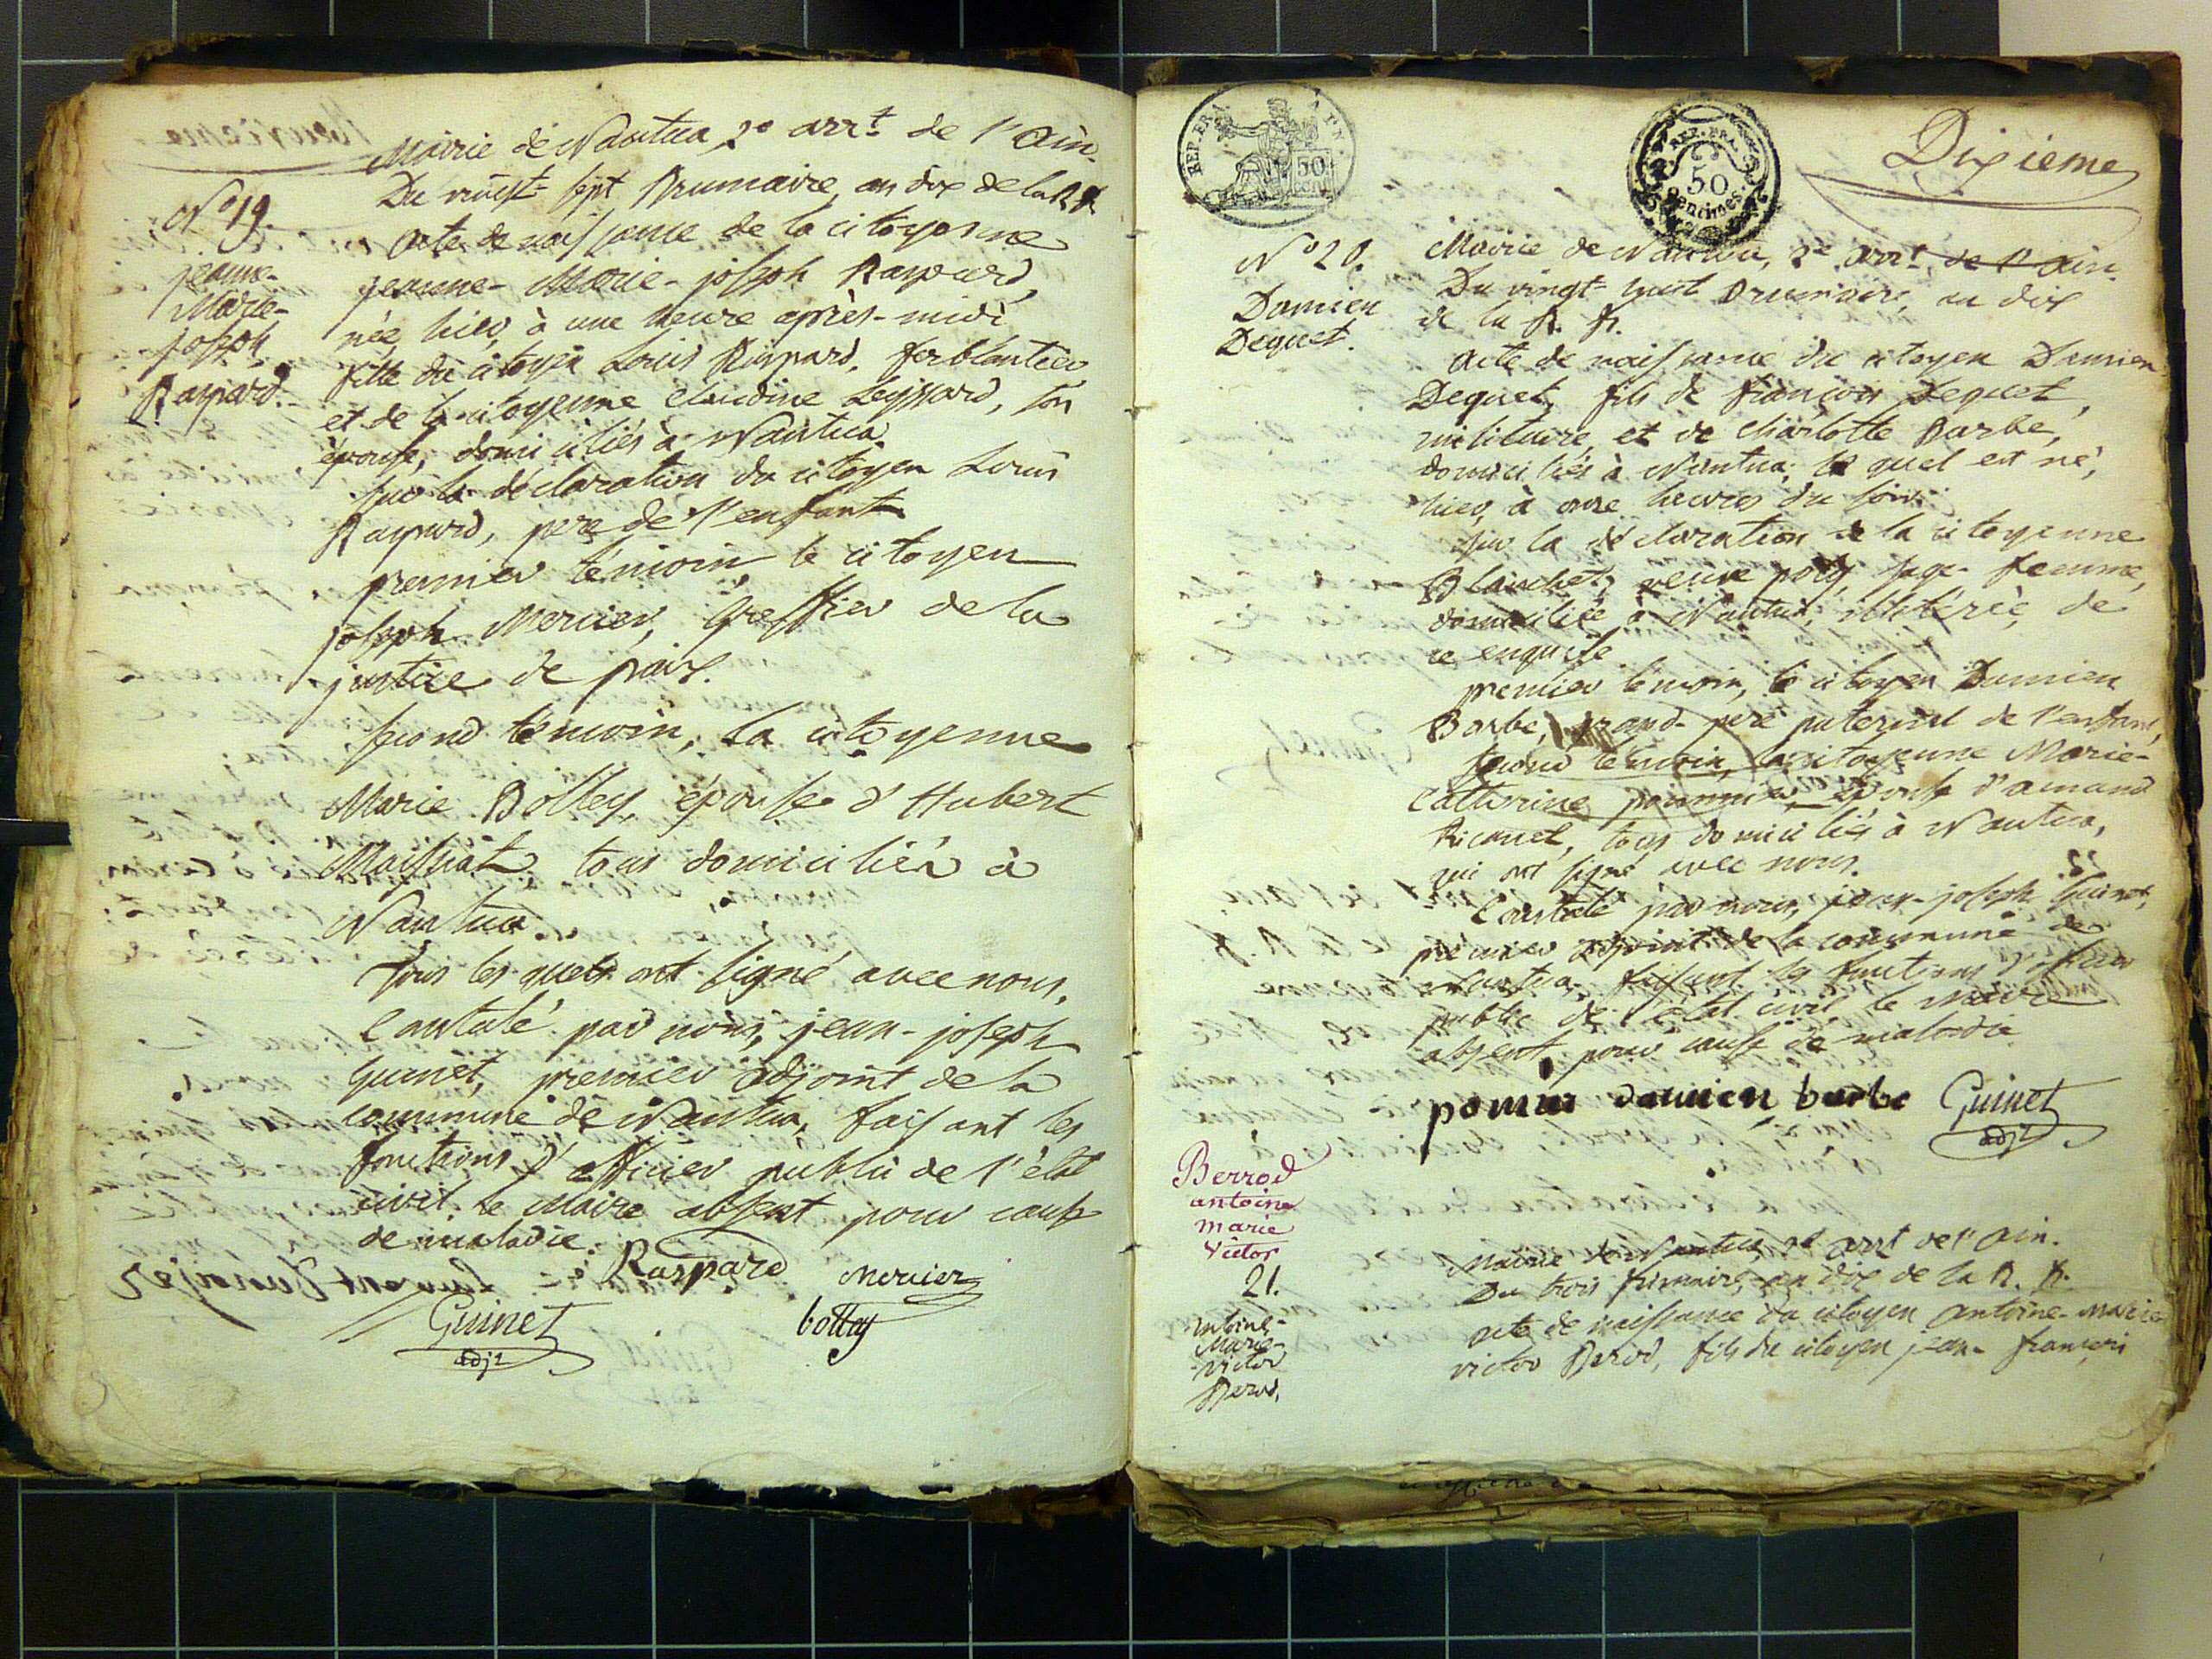 Mairie de Nantua, 2e arrt de l'ain.
Du vingt-sept Brumaire, an dix de la R. f.
N° 19.
jeanne-
Marie-
joseph
Raspard.
acte de naissance de la citoyenne
jeanne-Marie-joseph Raspard,
née hier, à une heure après-midi
fille du citoyen Louis Raspard, ferblantier
et de la citoyenne Claudine Leyssard, son
épouse, domiciliés à Nantua.
sur la déclaration du citoyen Louis
Raspard, pere de l'enfant
premier témoin, le citoyen
joseph Mercier, Greffier de la
justice de paix.
second témoin, la citoyenne
Marie Bolley, épouse d'Hubert
Maissiat tous domiciliés à
Nantua.
tous les quels ont signé avec nous.
Constaté par nous, jean-joseph
Guinet, premier adjoint de la
commune de Nantua, faisant les
fonctions d'officier public de l'état
civil, le Maire absent pour cause
de maladie.
Raspard Mercier
Guinet bolley
adjt
REP. FRA 50
REP. FRA. 50 Centimes.
Dixieme
N° 20.
Damien
Dequet.
Mairie de Nantua, 2e arrt, de l'ain.
Du vingt-huit Brumaire, an dix
de la R. fr.
acte de naissance du citoyen Damien
Dequet, fils de françois Dequet,
militaire, et de Charlotte Barbe,
domiciliés à Nantua; le quel est né,
hier, à onze heures du soir.
sur la déclaration de la citoyenne
Blanchet, veuve poly, sage-femme,
domiciliée à Nantua, illitérée, de
ce enquise
premier témoin, le citoyen Damien
Barbe, grand-pere paternel de l'enfant,
second témoin, la citoyenne Marie-
Catherine, épouse d'amand
Ricanet, tous domiciliés à Nantua,
qui ont signé avec nous.
Constaté par nous, jean-joseph Guinet,
premier adjoint de la commune de
Nantua, faisant les fonctions d'officier
public de l'état civil, le maire
absent pour cause de maladie
damien barbe Guinet
adjt
Berrod
antoine
marie
Victor
21.
antoine-
Marie-
victor
Berod.
Mairie de Nantua, 2e arrt de l'ain.
Du trois frimaire, an dix de la R. fr.
acte de naissance du citoyen antoine-marie
victor Berod, fils du citoyen jean-françois